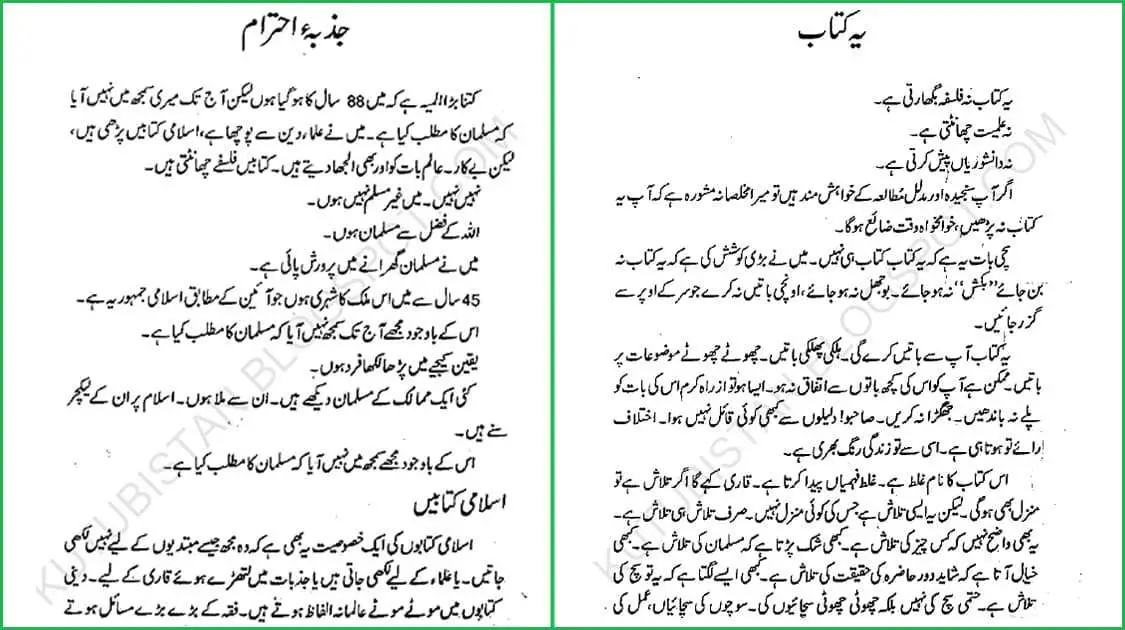 یہ کتاب
یہ کتاب نہ فلسفہ بگھارتی ہے۔
نہ علمیت چھانٹتی ہے۔
نہ دانشوریاں پیش کرتی ہے۔
اگر آپ سنجیدہ اور مدلل مُطالعہ کے خواہش مند ہیں تو میرا مخلصانہ مشورہ ہے کہ آپ یہ
کتاب نہ پڑھیں، خوامخواہ وقت ضائع ہوگا۔
سچی بات یہ ہے کہ یہ کتاب کتاب ہی نہیں۔ میں نے بڑی کوشش کی ہے کہ یہ کتاب نہ
بن جائے ”بکش“ نہ ہو جائے۔ بوجھل نہ ہو جائے، اونچی باتیں نہ کرے جو سر کے اوپر سے
گزر جائیں۔
یہ کتاب آپ سے باتیں کرے گی۔ ہلکی پھلکی باتیں۔ چھوٹے چھوٹے موضوعات پر
باتیں۔ ممکن ہے آپ کو اس کی کچھ باتوں سے اتفاق نہ ہو۔ ایسا ہو تو از راہ کرم اس کی بات کو
پلے نہ باندھیں۔ جھگڑا نہ کریں۔ صاحبو! دلیلوں سے کبھی کوئی قائل نہیں ہوا۔ اختلاف
رائے تو ہوتا ہی ہے۔ اسی سے تو زندگی رنگ بھری ہے۔
اس کتاب کا نام غلط ہے۔ غلط فہمیاں پیدا کرتا ہے۔ قاری کہے گا اگر تلاش ہے تو
منزل بھی ہوگی۔ لیکن یہ ایسی تلاش ہے جس کی کوئی منزل نہیں۔ صرف تلاش ہی تلاش ہے۔
یہ بھی واضح نہیں کہ کس چیز کی تلاش ہے۔ کبھی شک پڑتا ہے کہ مسلمان کی تلاش ہے۔ کبھی
خیال آتا ہے کہ شاید دور حاضرہ کی حقیقت کی تلاش ہے۔ کبھی ایسے لگتا ہے کہ یہ تو سچ کی
تلاش ہے۔ حتمی سچ کی نہیں بلکہ چھوٹی چھوٹی سچائیوں کی۔ سوچوں کی سچائیاں، عمل کی
جذبۂ احترام
کتنا بڑا المیہ ہے کہ میں 88 سال کا ہو گیا ہوں لیکن آج تک میری سمجھ میں نہیں آیا
کہ مسلمان کا مطلب کیا ہے۔ میں نے علماء دین سے پوچھا ہے، اسلامی کتابیں پڑھی ہیں،
لیکن بے کار۔ عالم بات کو اور بھی الجھا دیتے ہیں۔ کتابیں فلسفے چھانٹتی ہیں۔
نہیں نہیں۔ میں غیر مسلم نہیں ہوں۔
اللہ کے فضل سے مسلمان ہوں۔
میں نے مسلمان گھرانے میں پرورش پائی ہے۔
45 سال سے میں اس ملک کا شہری ہوں جو آئین کے مطابق اسلامی جمہوریہ ہے۔
اس کے باوجود مجھے آج تک سمجھ نہیں آیا کہ مسلمان کا مطلب کیا ہے۔
یقین کیجیے میں پڑھا لکھا فرد ہوں۔
کئی ایک ممالک کے مسلمان دیکھے ہیں۔ ان سے ملا ہوں۔ اسلام پر ان کے لیکچر
سنے ہیں۔
اس کے باوجود مجھے سمجھ میں نہیں آیا کہ مسلمان کا مطلب کیا ہے۔
اسلامی کتابیں
اسلامی کتابوں کی ایک خصوصیت یہ بھی ہے کہ وہ مجھ جیسے مبتدیوں کے لیے نہیں لکھی
جاتیں۔ یا علماء کے لیے لکھی جاتی ہیں یا جذبات میں لتھڑے ہوئے قاری کے لیے۔ دینی
کتابوں میں موٹے موٹے عالمانہ الفاظ ہوتے ہیں۔ فقہ کے بڑے بڑے مسائل ہوتے
KUTUBISTAN.BLOGSPOT.COM
KUTUBISTAN.BLOGSPOT.COM